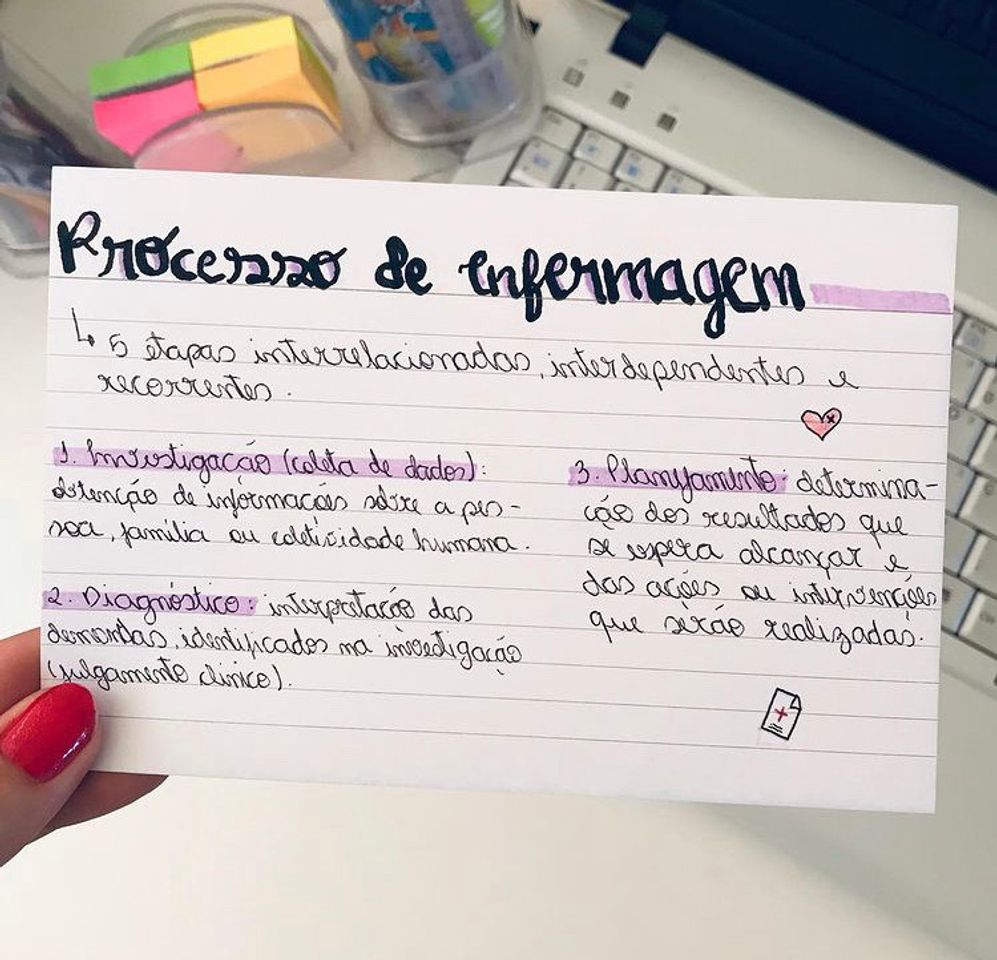 Processo de enfermagem
↳ 5 etapas interrelacionadas, interdependentes e
recorrentes.
1. Investigação (coleta de dados):
obtenção de informações sobre a pes-
soa, família ou coletividade humana.
2. Diagnóstico: interpretação das
demandas identificadas na investigação
(julgamento clínico).
3. Planejamento: determina-
ção dos resultados que
se espera alcançar e
das ações ou intervenções
que serão realizadas.